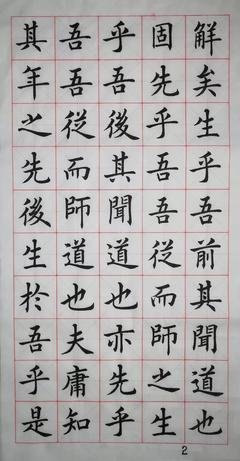 解矣生乎吾前其聞道也
固先乎吾吾從而師之生
乎吾後其聞道也亦先乎
吾吾從而師道也夫庸知
其年之先後生於吾乎是
2